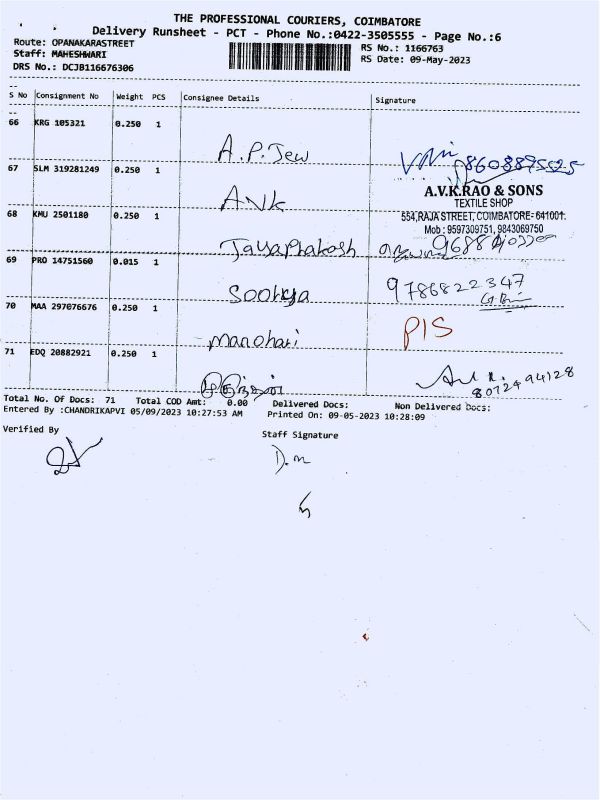 THE PROFESSIONAL COURIERS, COIMBATORE
Delivery Runsheet - PCT - Phone No.:0422-3505555 - Page No.:6
Route: OPANAKARASTREET
Staff: MAHESHWARI
DRS No.: DCJB116676306
RS No.: 1166763
RS Date: 09-May-2023
S No Consignment No Weight PCS Consignee Details Signature
66 KRG 105321 0.250 1
A.P. Jew
67 SLM 319281249 0.250 1
ANK
A.V.K.RAO & SONS
TEXTILE SHOP
554,RAJA STREET, COIMBATORE- 641001.
Mob : 9597309751, 9843069750
68 KMU 2501180 0.250 1
Jayaprakash
69 PRO 14751560 0.015 1
Soorya 9786822347
70 MAA 297076676 0.250 1
Manohari PIS
71 EDQ 20882921 0.250 1
8072494128
Total No. Of Docs: 71 Total COD Amt: 0.00 Delivered Docs: Non Delivered Docs:
Entered By :CHANDRIKAPVI 05/09/2023 10:27:53 AM Printed On: 09-05-2023 10:28:09
Verified By Staff Signature
D.m